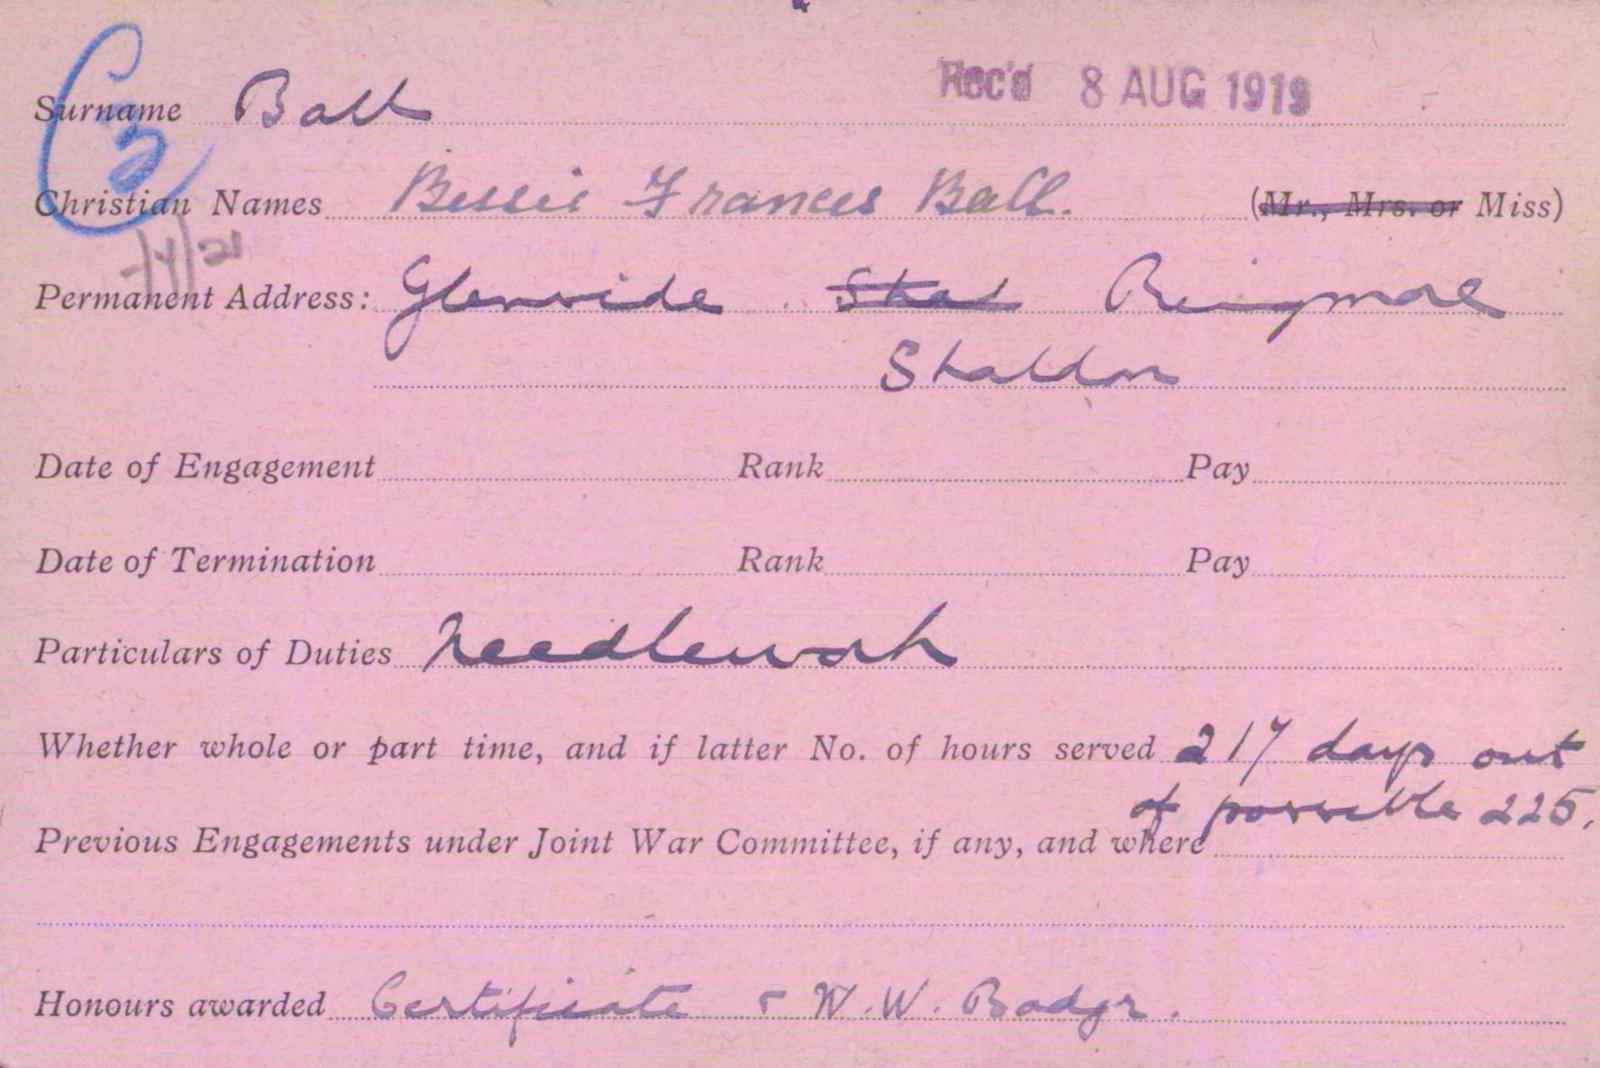 Rec'd 8 AUG 1919
Surname Ball
Christian Names Bessie Frances Ball. (Mr., Mrs. or Miss)
-/4/21
Permanent Address: Glenside . Shal Ringmore
Shaldon
Date of Engagement Rank Pay
Date of Termination Rank Pay
Particulars of Duties Needlework
Whether whole or part time, and if latter No. of hours served 217 days out
of possible 225.
Previous Engagements under Joint War Committee, if any, and where
Honours awarded Certificate & W.W. Badge.